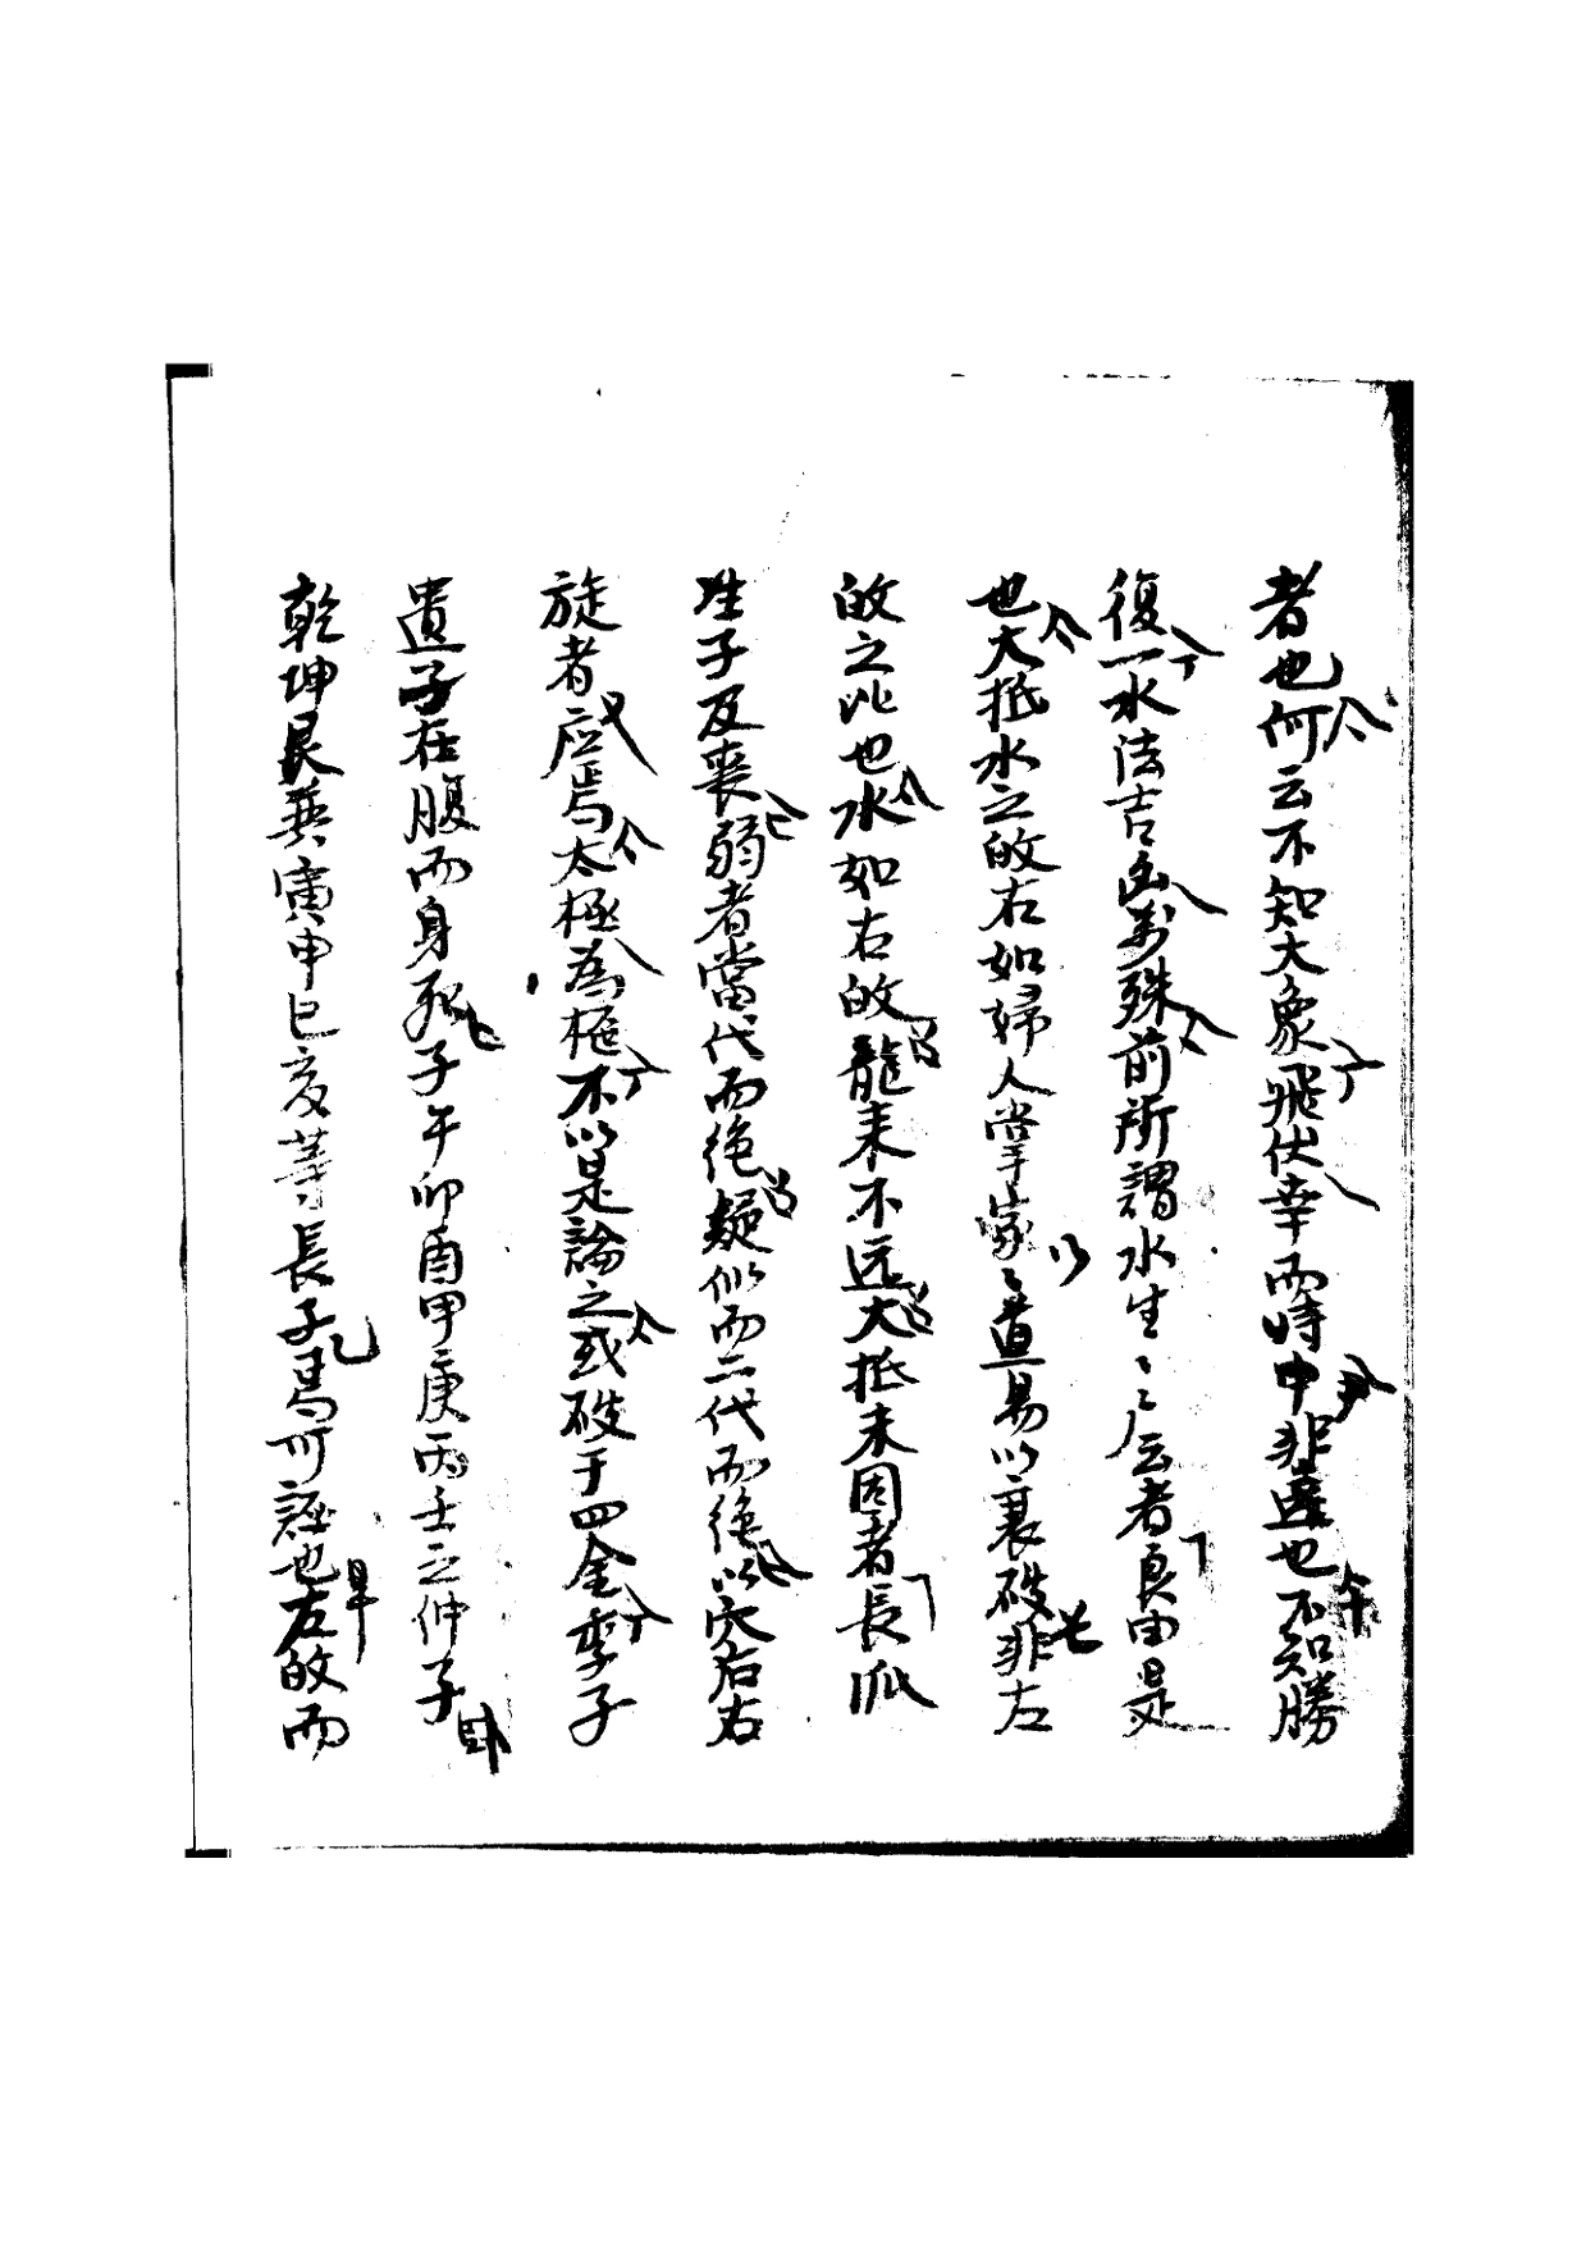 者也何云不知大象飛伏幸而時中非違也不知勝
復一水法吉凶萬殊前所謂水生〻〻云者良由是
也大抵水之故右如婦人掌家〻道易以衰破非左
故之比也水如右故龍来不远大抵未因者長派
生子及喪弱者當代而絶疑似而二代而絶以穴右右
旋者应焉太極為極不以是論之或破于四金季子
遺子在腹而身死子午卯酉甲庚丙壬之仲子
乾坤艮巽寅申巳亥等長子焉可誣也左故而